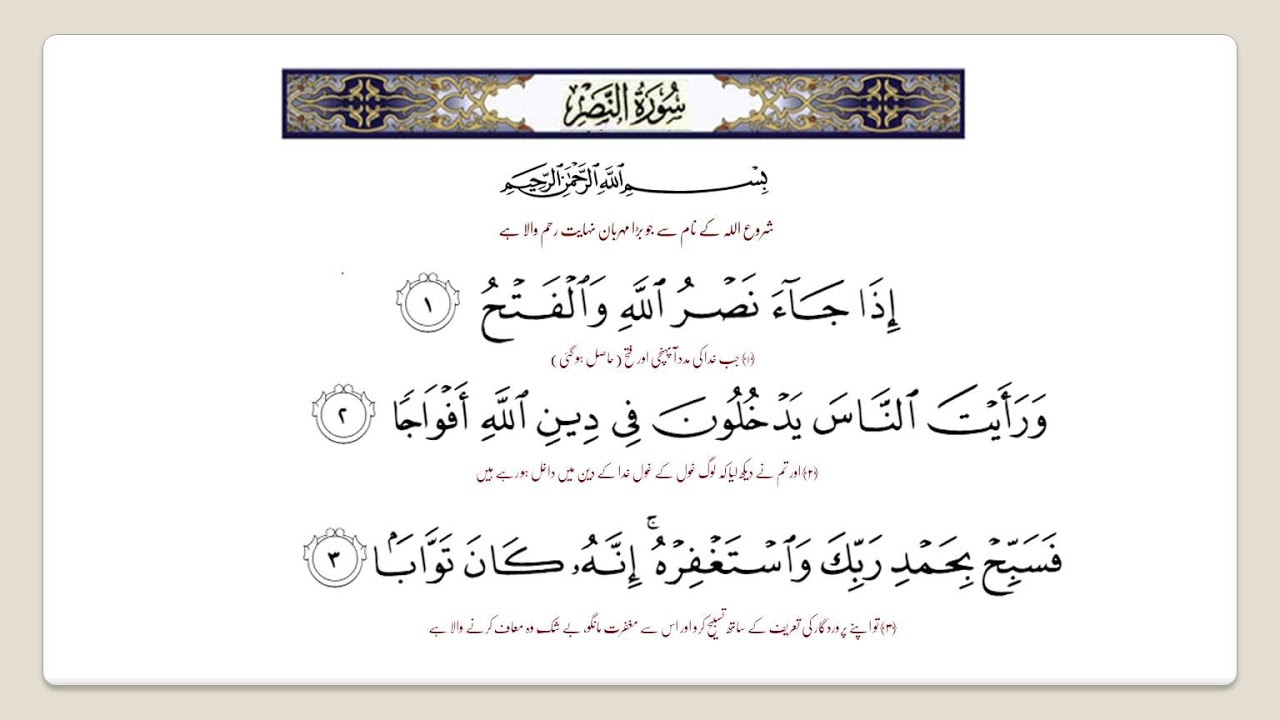 سُورَةُ النَّصْرِ
بِسْمِ ٱللَّهِ ٱلرَّحْمَٰنِ ٱلرَّحِيمِ
شروع اللہ کے نام سے جو بڑا مہربان نہایت رحم والا ہے
إِذَا جَآءَ نَصْرُ ٱللَّهِ وَٱلْفَتْحُ ١
﴿۱﴾ جب خدا کی مدد آ پہنچی اور فتح (حاصل ہو گئی)
وَرَأَيْتَ ٱلنَّاسَ يَدْخُلُونَ فِى دِينِ ٱللَّهِ أَفْوَاجًا ٢
﴿۲﴾ اور تم نے دیکھ لیا کہ لوگ غول کے غول خدا کے دین میں داخل ہو رہے ہیں
فَسَبِّحْ بِحَمْدِ رَبِّكَ وَٱسْتَغْفِرْهُ ۚ إِنَّهُۥ كَانَ تَوَّابَۢا ٣
﴿۳﴾ تو اپنے پروردگار کی تعریف کے ساتھ تسبیح کرو اور اس سے مغفرت مانگو، بے شک وہ معاف کرنے والا ہے